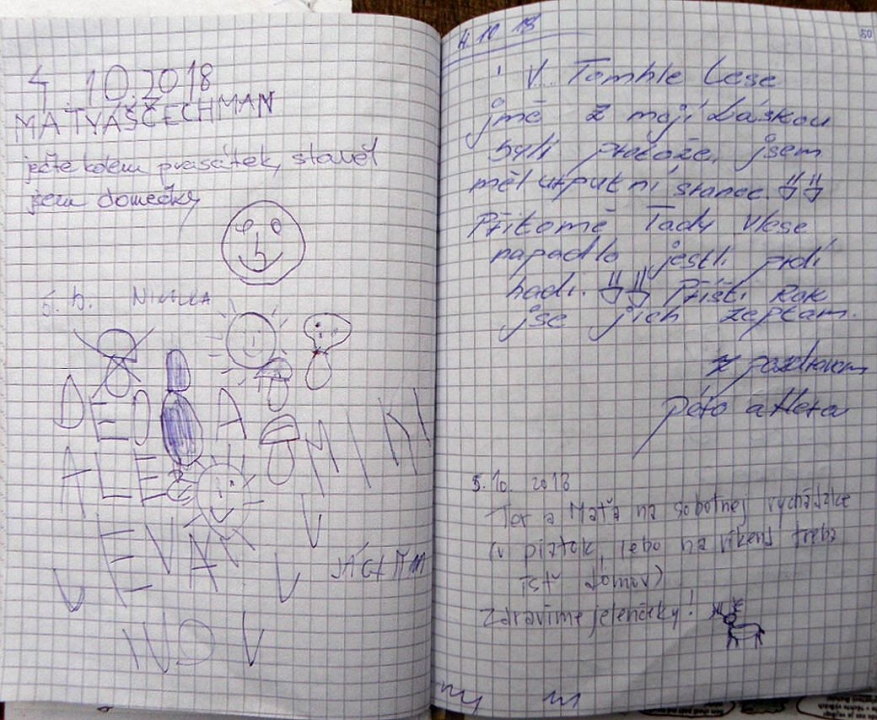 4.10.2018
MATYÁŠ ČECHMAN
ještě kolem prasátek, stavěl
jsem domečky
5.10. NIKOLKA
DEDA
MIKI
ALE
V
LEVAX
V
V JÁCHYM
4.10 18
50
V Tomhle Lese
jmě z mojí Láskou
byli protože jsem
měl urputní sranec.
Přitomě Tady v lese
napadlo jestli prdí
hadi. Příští Rok
jse jich zeptam.
z pozdravem
péťa atleta
5.10. 2018
Tat a Maťa na sobotnej vychádzke
(v piatok, lebo na víkend treba
ísť domov)
Zdravíme jelenčeky!